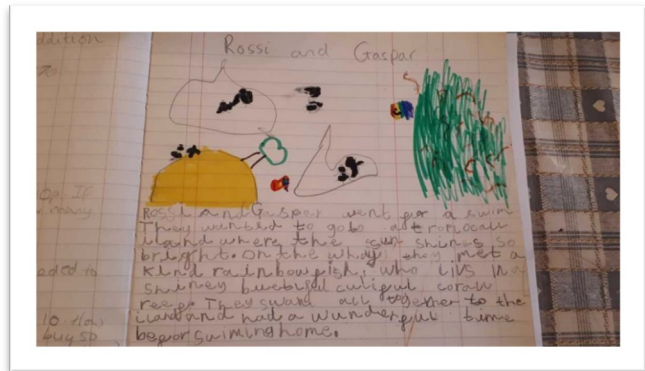 ddition
Rossi and Gaspar
Rossi and Gaspar went for a swim
They wanted to go to a tropocall
iland where the sun shines so
bright. on the whay they met a
kind rainbowfish, who livs in a
shiney buetiful culiful corall
reef. They swam all together to the
iland and had a wunderful time
befor swiming home.
op. IF
many
eded to
buy so